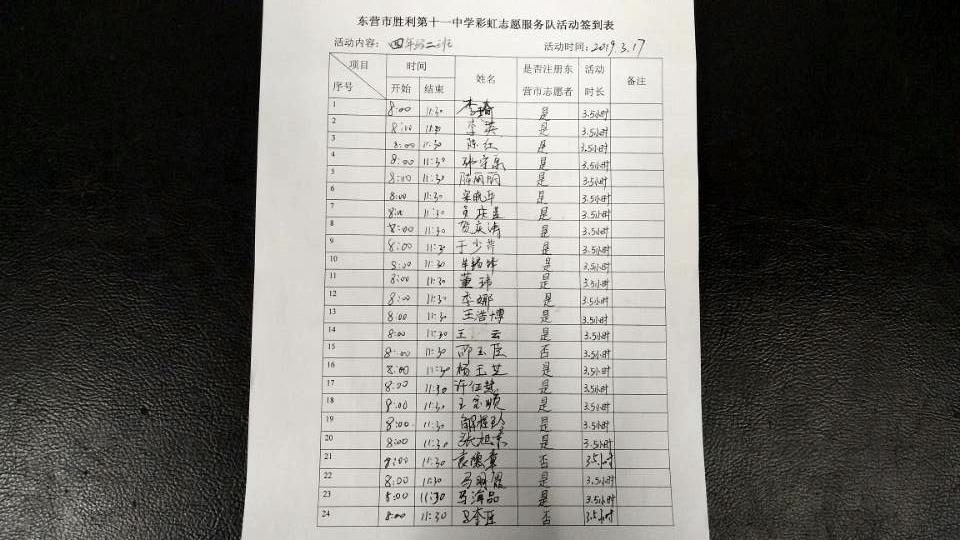 东营市胜利第十一中学彩虹志愿服务队活动签到表
活动内容：四年级二班 活动时间：2019.3.17
项目 序号 时间 开始 结束 姓名 是否注册东营市志愿者 活动时长 备注
1 8:00 11:30 李琦 是 3.5小时
2 8:00 11:30 李英 是 3.5小时
3 8:00 11:30 陈红 是 3.5小时
4 8:00 11:30 张守乐 是 3.5小时
5 8:00 11:30 陈丽丽 是 3.5小时
6 8:00 11:30 是 3.5小时
7 8:00 11:30 是 3.5小时
8 8:00 11:30 贺庆涛 是 3.5小时
9 8:00 11:30 于少华 是 3.5小时
10 8:00 11:30 是 3.5小时
11 8:00 11:30 董玮 是 3.5小时
12 8:00 11:30 李娜 是 3.5小时
13 8:00 11:30 王浩博 是 3.5小时
14 8:00 11:30 王云 是 3.5小时
15 8:00 11:30 邵玉臣 否 3.5小时
16 8:00 11:30 杨玉芝 是 3.5小时
17 8:00 11:30 是 3.5小时
18 8:00 11:30 是 3.5小时
19 8:00 11:30 是 3.5小时
20 8:00 11:30 是 3.5小时
21 8:00 11:30 袁德章 否 3.5小时
22 8:00 11:30 是 3.5小时
23 8:00 11:30 是 3.5小时
24 8:00 11:30 否 3.5小时